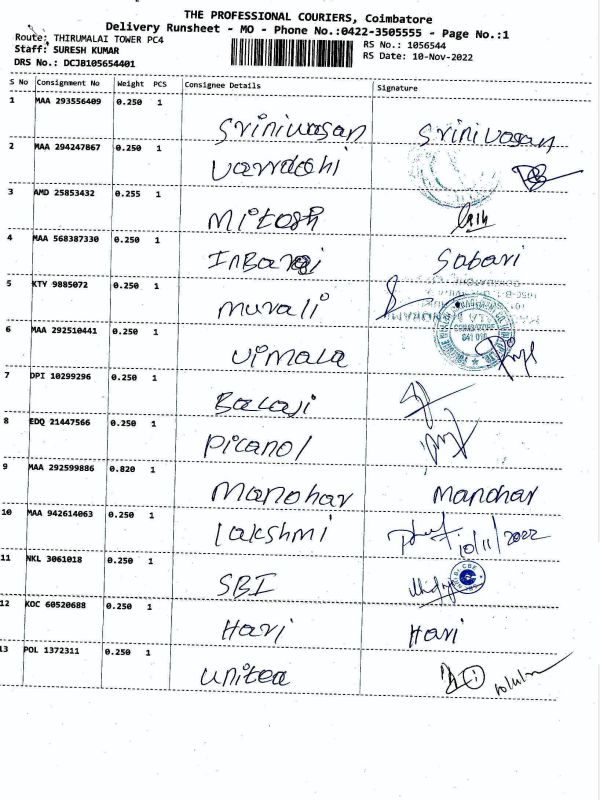 THE PROFESSIONAL COURIERS, Coimbatore
Delivery Runsheet - MO - Phone No.:0422-3505555 - Page No.:1
Route: THIRUMALAI TOWER PC4
RS No.: 1056544
Staff: SURESH KUMAR
RS Date: 10-Nov-2022
DRS No.: DCJB105654401
S No Consignment No Weight PCS Consignee Details Signature
1 MAA 293556409 0.250 1 Srinivasan Srinivasan
2 MAA 294247867 0.250 1
3 AMD 25853432 0.255 1 Mitosh
4 MAA 568387330 0.250 1 Sabari
5 KTY 9885072 0.250 1 Murali
6 MAA 292510441 0.250 1 Vimala
COIMBATORE
641 018
7 DPI 10299296 0.250 1 Balaji
8 EDQ 21447566 0.250 1 Picanol
9 MAA 292599886 0.820 1 Manohar Manohar
10 MAA 942614063 0.250 1 Lakshmi 10/11/2022
11 NKL 3061018 0.250 1 SBI
12 KOC 60520688 0.250 1 Hari Hari
13 POL 1372311 0.250 1 United